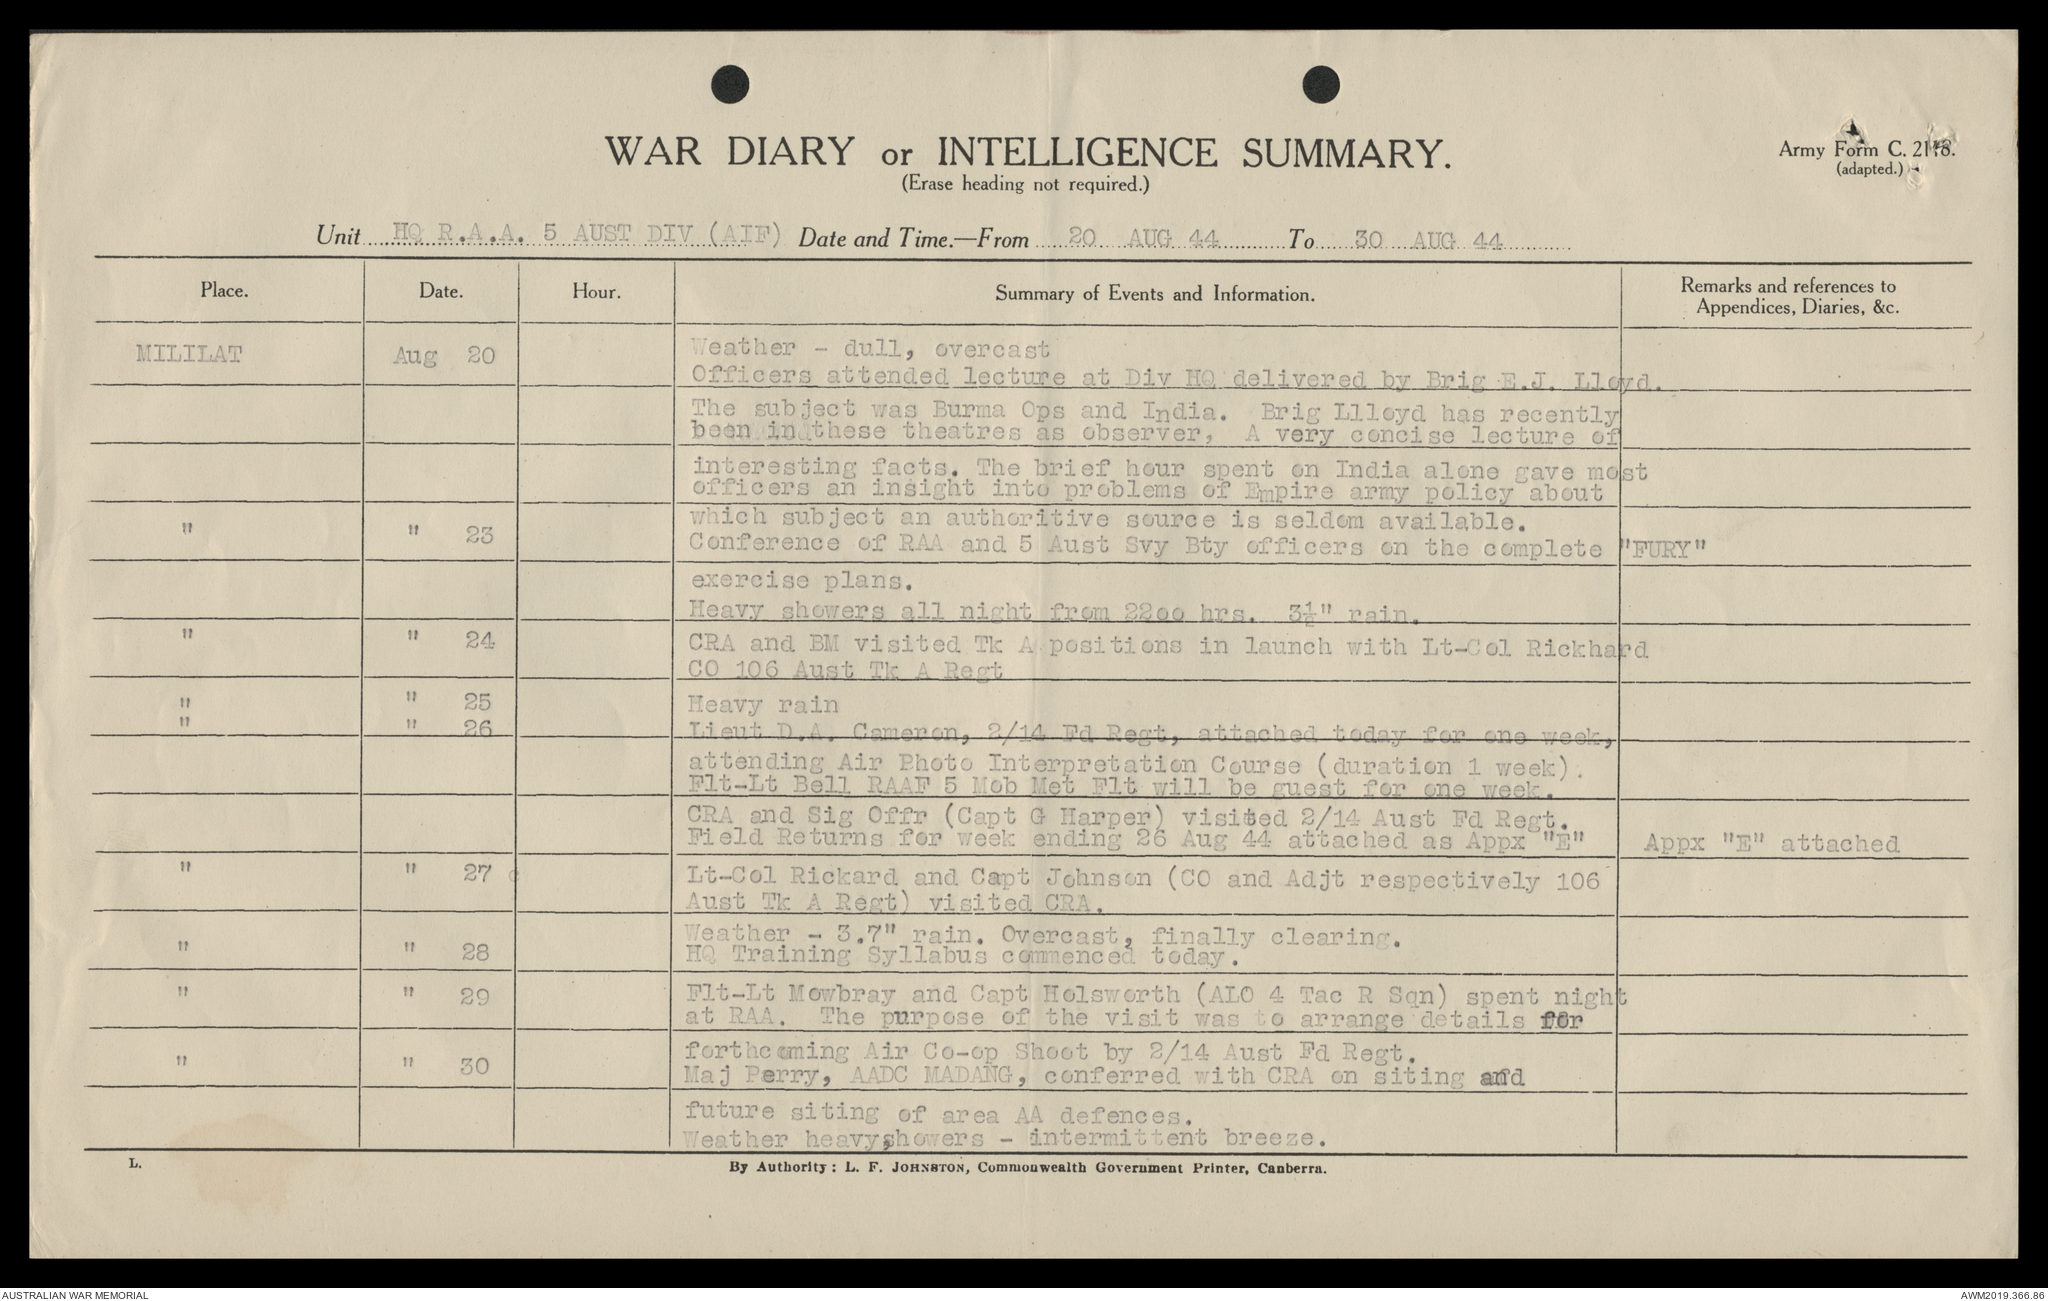 WAR DIARY or INTELLIGENCE SUMMARY.
(Erase heading not required.)
Army Form C. 2118.
(adapted.)
Unit HQ R.A.A. 5 AUST DIV (AIF) Date and Time.—From 20 AUG 44 To 30 AUG 44
Place. Date. Hour. Summary of Events and Information. Remarks and references to
Appendices, Diaries, &c.
MILILAT Aug 20 Weather - dull, overcast
Officers attended lecture at Div HQ delivered by Brig E.J. Lloyd.
The subject was Burma Ops and India. Brig Llloyd has recently
been in these theatres as observer, A very concise lecture of
interesting facts. The brief hour spent on India alone gave most
officers an insight into problems of Empire army policy about
which subject an authoritive source is seldom available.
" " 23 Conference of RAA and 5 Aust Svy Bty officers on the complete "FURY"
exercise plans.
Heavy showers all night from 2200 hrs. 3½" rain.
" " 24 CRA and BM visited Tk A positions in launch with Lt-Col Rickhard
CO 106 Aust Tk A Regt
" " 25 Heavy rain
" " 26 Lieut D.A. Cameron, 2/14 Fd Regt, attached today for one week,
attending Air Photo Interpretation Course (duration 1 week).
Flt-Lt Bell RAAF 5 Mob Met Flt will be guest for one week.
CRA and Sig Offr (Capt G Harper) visited 2/14 Aust Fd Regt.
Field Returns for week ending 26 Aug 44 attached as Appx "E" Appx "E" attached
" " 27 Lt-Col Rickard and Capt Johnson (CO and Adjt respectively 106
Aust Tk A Regt) visited CRA.
Weather - 3.7" rain. Overcast, finally clearing.
" " 28 HQ Training Syllabus commenced today.
" " 29 Flt-Lt Mowbray and Capt Holsworth (ALO 4 Tac R Sqn) spent night
at RAA. The purpose of the visit was to arrange details for
forthcoming Air Co-op Shoot by 2/14 Aust Fd Regt.
" " 30 Maj Perry, AADC MADANG, conferred with CRA on siting and
future siting of area AA defences.
Weather heavy showers - intermittent breeze.
L. By Authority: L. F. JOHNSTON, Commonwealth Government Printer, Canberra.
AUSTRALIAN WAR MEMORIAL AWM2019.366.86